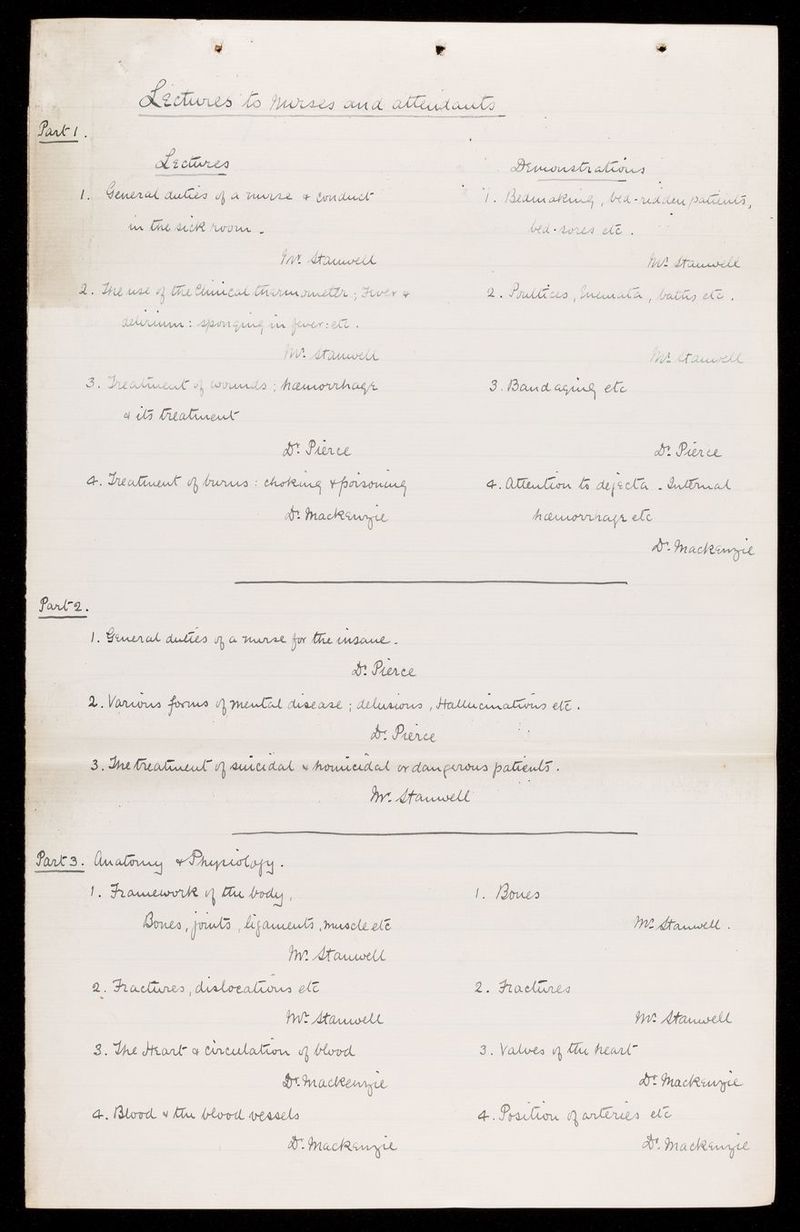 Lectures to Nurses and attendants
Part 1.
Lectures
1. General duties of a nurse & conduct
in the sick room.
Mr. Stanwell
2. The use of the Clinical thermometer; Fever &
delirium: sponging in fever: etc.
Mr. Stanwell
3. Treatment of wounds; hæmorrhage
& its treatment
Dr. Pierce
4. Treatment of burns: choking & poisoning
Dr. Mackenzie
Demonstrations
1. Bedmaking, bed-ridden patients,
bed-sores etc.
Mr. Stanwell
2. Poultices, Enemata, baths, etc.
Mr. Stanwell
3. Bandaging etc
Dr. Pierce
4. Attention to dejecta - Internal
hæmorrhage etc
Dr. Mackenzie
Part 2.
1. General duties of a nurse for the insane.
Dr. Pierce
2. Various forms of mental disease; delusions, Hallucinations etc.
Dr. Pierce
3. The treatment of suicidal & homicidal or dangerous patients.
Mr. Stanwell
Part 3. Anatomy & Physiology.
1. Framework of the body,
Bones, joints, ligaments, muscle etc
Mr. Stanwell
2. Fractures, dislocations etc
Mr. Stanwell
3. The Heart & circulation of blood
Dr. Mackenzie
4. Blood & the blood vessels
Dr. Mackenzie
1. Bones
Mr. Stanwell.
2. Fractures
Mr. Stanwell
3. Valves of the heart
Dr. Mackenzie
4. Position of arteries etc
Dr. Mackenzie